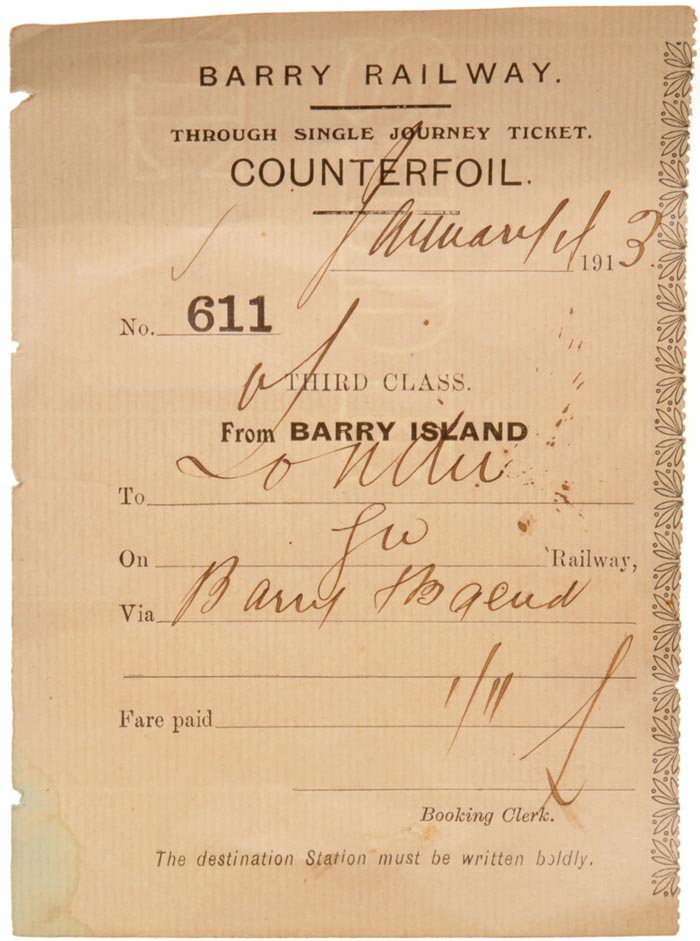 BARRY RAILWAY.
THROUGH SINGLE JOURNEY TICKET.
COUNTERFOIL.
January 1913
No. 611
THIRD CLASS.
From BARRY ISLAND
To Tondu
On GW Railway,
Via Barry & Bgend
Fare paid 1/11
Booking Clerk.
The destination Station must be written boldly.